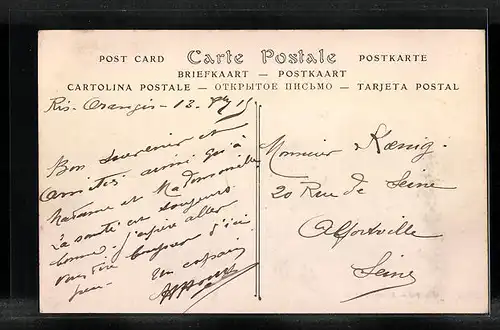 POST CARD Carte Postale POSTKARTE
BRIEFKAART — POSTKAART
CARTOLINA POSTALE — ОТКРЫТОЕ ПИСЬМО — TARJETA POSTAL
Ris-Orangis - 13 15
Bon souvenir et
amitiés ainsi qu'à
Madame et Mademoiselle
La santé est toujours
bonne. J'espère aller
vous dire bonjour d'ici
peu.
Un copain
Monsieur Kœnig.
20 Rue de Seine
Alfortville
Seine